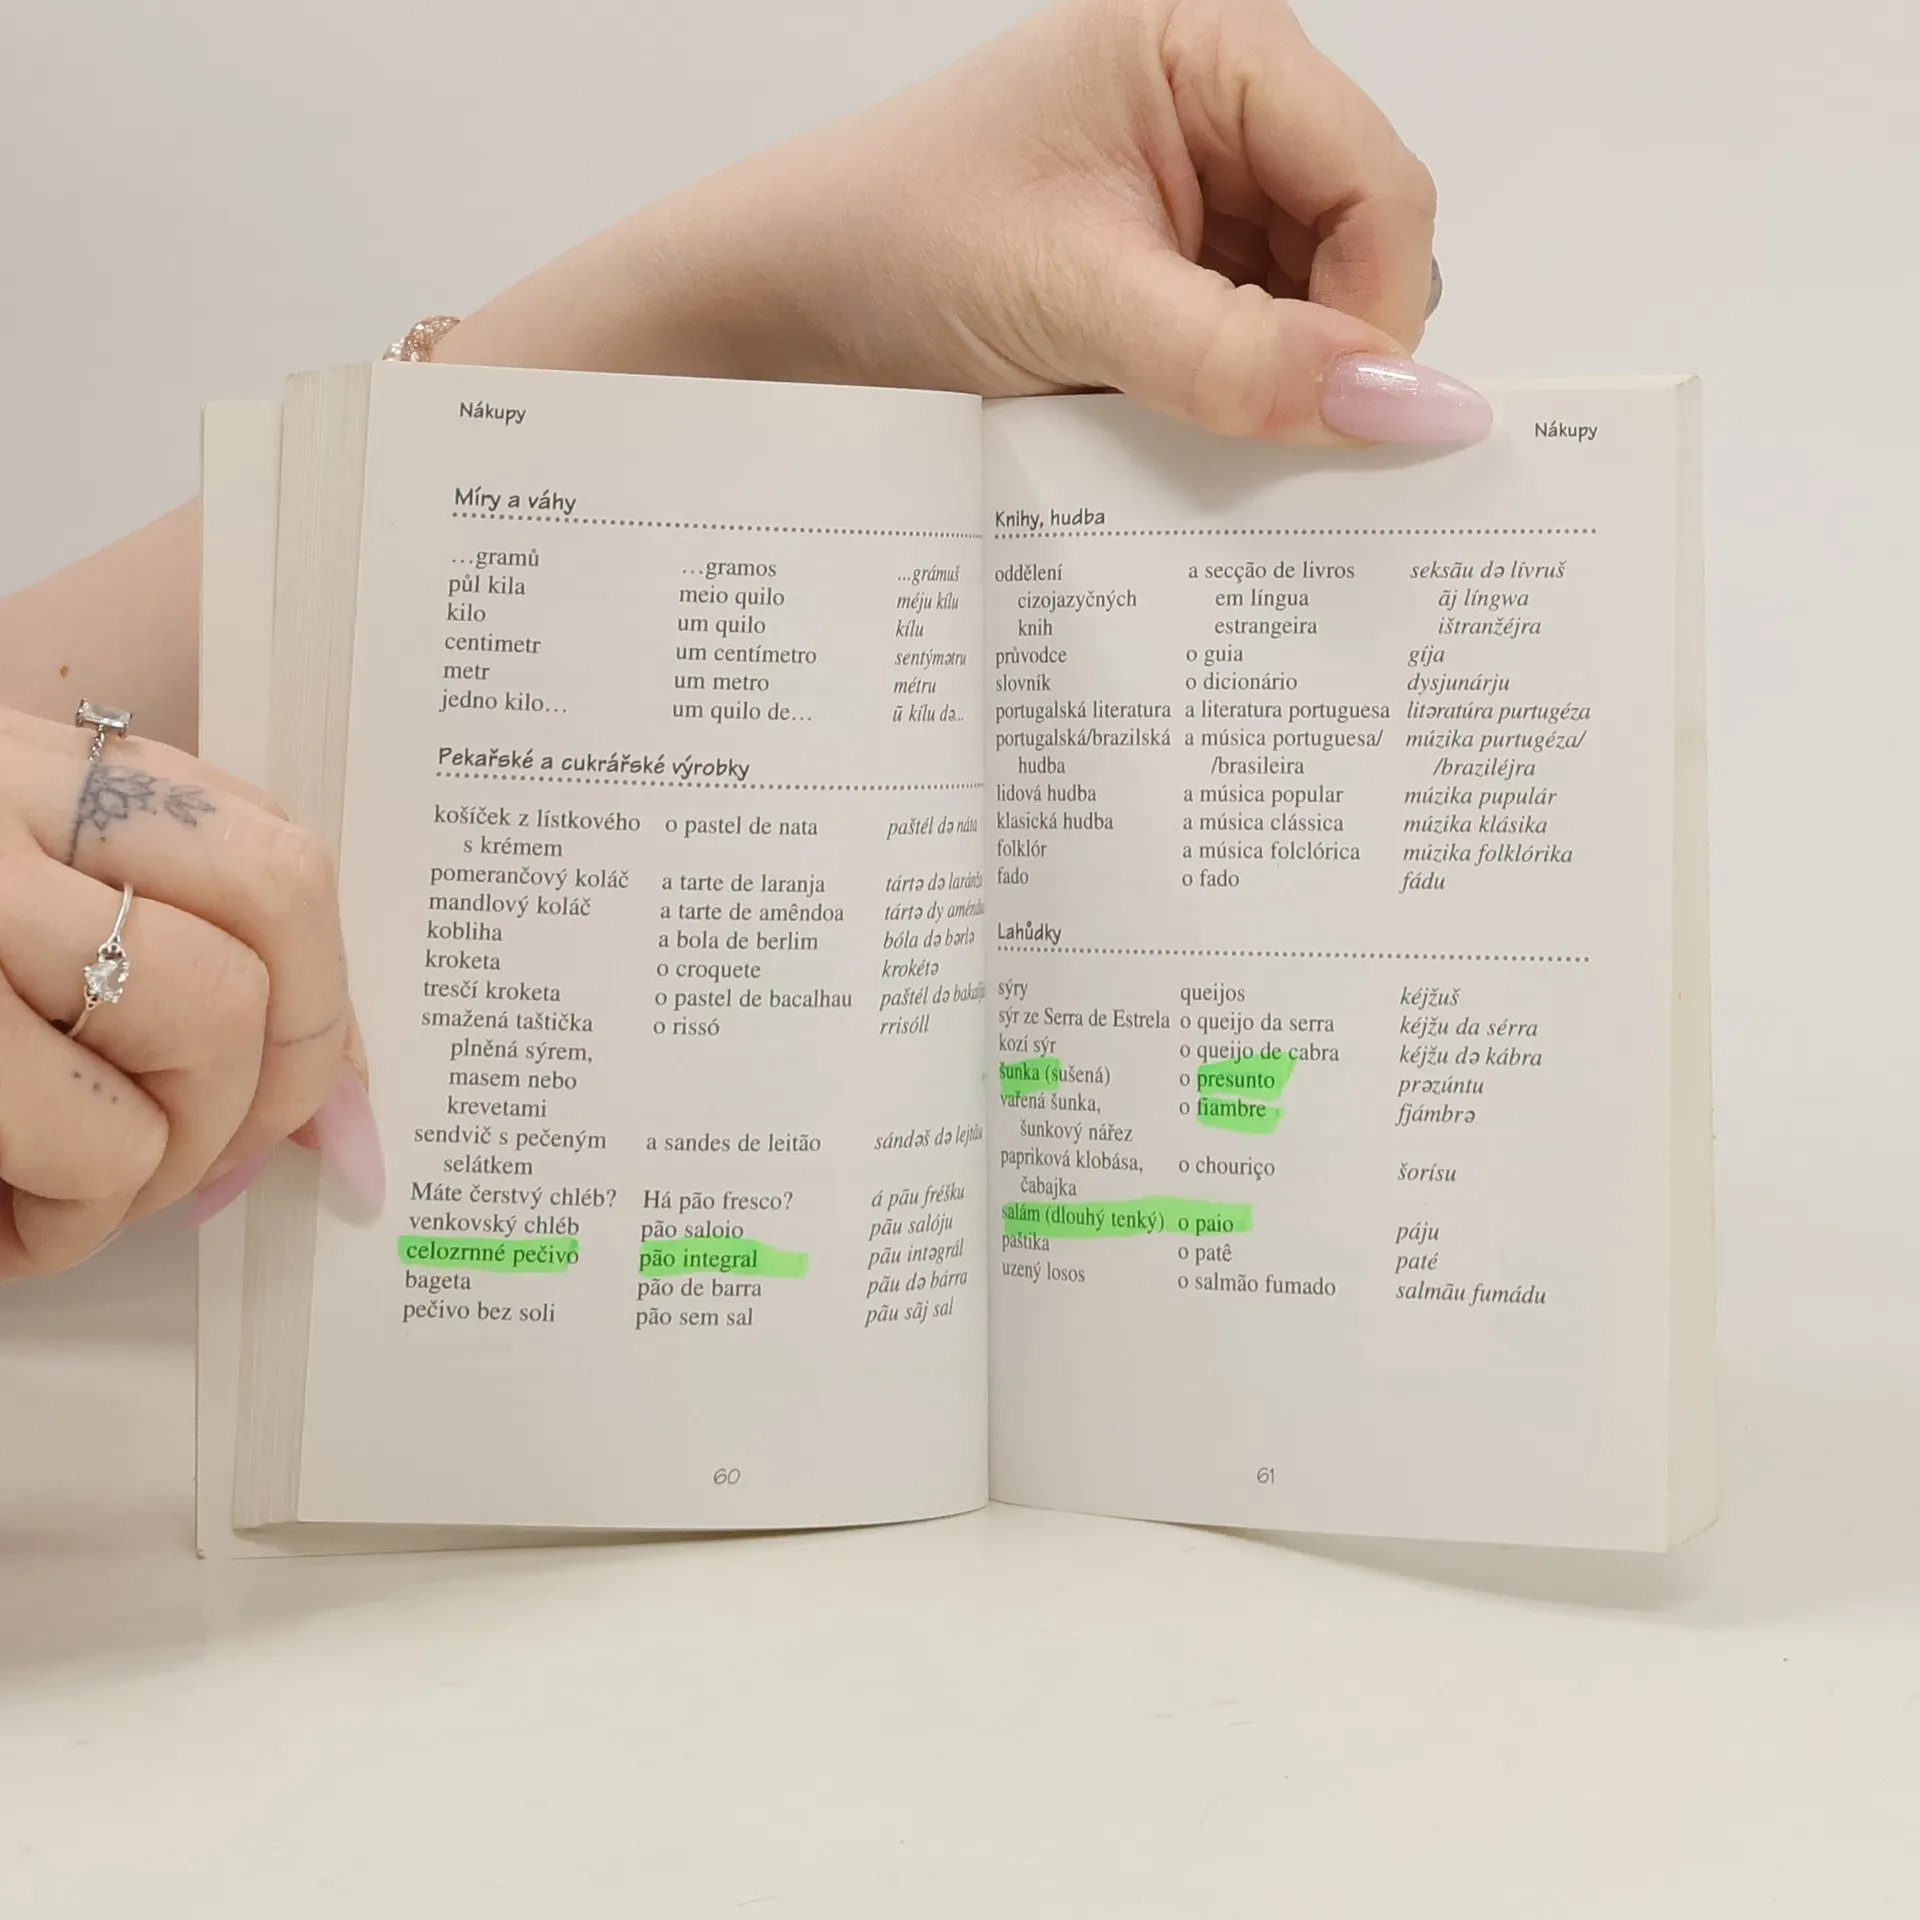 Nákupy
Míry a váhy
…gramů …gramos …grámuš
půl kila meio quilo méju kílu
kilo um quilo kílu
centimetr um centímetro sentýmətru
metr um metro métru
jedno kilo… um quilo de… ũ kílu də…
Pekařské a cukrářské výrobky
košíček z lístkového o pastel de nata paštél də náta
s krémem
pomerančový koláč a tarte de laranja tártə də
mandlový koláč a tarte de amêndoa tártə dy
kobliha a bola de berlim bóla də
kroketa o croquete krokétə
tresčí kroketa o pastel de bacalhau paštél də
smažená taštička o rissó rrisóll
plněná sýrem,
masem nebo
krevetami
sendvič s pečeným a sandes de leitão sándəš də
selátkem
Máte čerstvý chléb? Há pão fresco? á pãu fréšku
venkovský chléb pão saloio pãu salóju
celozrnné pečivo pão integral pãu intəgrál
bageta pão de barra pãu də bárra
pečivo bez soli pão sem sal pãu sãj sal
60
Nákupy
Knihy, hudba
oddělení a secção de livros seksãu də lívruš
cizojazyčných em língua ãj língwa
knih estrangeira ištranžéjra
průvodce o guia gíja
slovník o dicionário dysjunárju
portugalská literatura a literatura portuguesa litəratúra purtugéza
portugalská/brazilská a música portuguesa/ múzika purtugéza/
hudba /brasileira /braziléjra
lidová hudba a música popular múzika pupulár
klasická hudba a música clássica múzika klásika
folklór a música folclórica múzika folklórika
fado o fado fádu
Lahůdky
sýry queijos kéjžuš
sýr ze Serra de Estrela o queijo da serra kéjžu da sérra
kozí sýr o queijo de cabra kéjžu də kábra
šunka (sušená) o presunto prəzúntu
vařená šunka, o fiambre fjámbrə
šunkový nářez
papriková klobása, o chouriço šorísu
čabajka
salám (dlouhý tenký) o paio páju
paštika o patê paté
uzený losos o salmão fumado salmãu fumádu
61